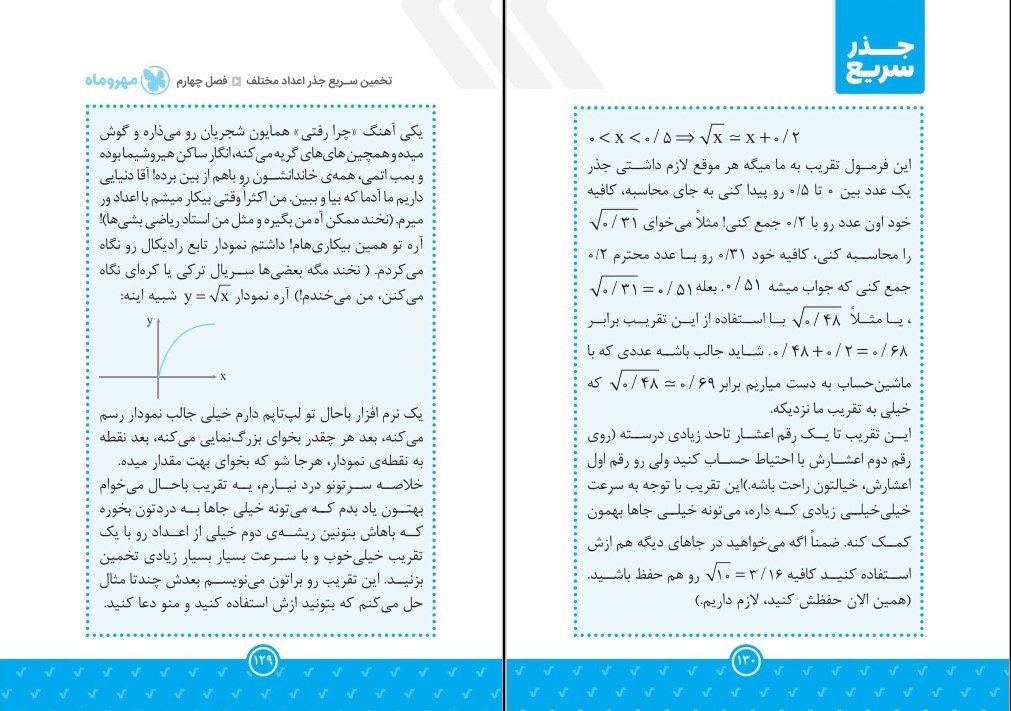 تخمین سریع جذر اعداد مختلف
فصل چهارم
مهروماه
یکی آهنگ «چرا رفتی» همایون شجریان رو می‌ذاره و گوش
میده و همچین های‌های گریه می‌کنه، انگار ساکن هیروشیما بوده
و بمب اتمی، همه‌ی خاندانشون رو باهم از بین برده! آقا دنیایی
داریم ما آدما که بیا و ببین. من اکثراً وقتی بیکار میشم با اعداد ور
میرم. (نخند ممکن آه من بگیره و مثل من استاد ریاضی بشی‌ها)!
آره تو همین بیکاری‌هام! داشتم نمودار تابع رادیکال رو نگاه
می‌کردم. ( نخند مگه بعضی‌ها سریال ترکی یا کره‌ای نگاه
می‌کنن، من می‌خندم!) آره نمودار y = √x شبیه اینه:
y
x
یک نرم افزار باحال تو لپ‌تاپم دارم خیلی جالب نمودار رسم
می‌کنه، بعد هر چقدر بخوای بزرگ‌نمایی می‌کنه، بعد نقطه
به نقطه‌ی نمودار، هرجا شو که بخوای بهت مقدار میده.
خلاصه سرتونو درد نیارم، یه تقریب باحال می‌خوام
بهتون یاد بدم که می‌تونه خیلی جاها به دردتون بخوره
که باهاش بتونین ریشه‌ی دوم خیلی از اعداد رو با یک
تقریب خیلی‌خوب و با سرعت بسیار بسیار زیادی تخمین
بزنید. این تقریب رو براتون می‌نویسم بعدش چندتا مثال
حل می‌کنم که بتونید ازش استفاده کنید و منو دعا کنید.
۱۲۹
جذر
سریع
۰ < x < ۰/۵ ⇒ √x ≃ x + ۰/۲
این فرمول تقریب به ما میگه هر موقع لازم داشتی جذر
یک عدد بین ۰ تا ۰/۵ رو پیدا کنی به جای محاسبه، کافیه
خود اون عدد رو با ۰/۲ جمع کنی! مثلاً می‌خوای √۰/۳۱
را محاسبه کنی، کافیه خود ۰/۳۱ رو با عدد محترم ۰/۲
جمع کنی که جواب میشه ۰/۵۱. بعله √۰/۳۱ = ۰/۵۱
، یا مثلاً √۰/۴۸ با استفاده از این تقریب برابر
۰/۴۸ + ۰/۲ = ۰/۶۸. شاید جالب باشه عددی که با
ماشین‌حساب به دست میاریم برابر √۰/۴۸ ≃ ۰/۶۹ که
خیلی به تقریب ما نزدیکه.
این تقریب تا یک رقم اعشار تاحد زیادی درسته (روی
رقم دوم اعشارش با احتیاط حساب کنید ولی رو رقم اول
اعشارش، خیالتون راحت باشه.)این تقریب با توجه به سرعت
خیلی‌خیلی زیادی که داره، می‌تونه خیلی جاها بهمون
کمک کنه. ضمناً اگه می‌خواهید در جاهای دیگه هم ازش
استفاده کنید کافیه √۱۰ = ۳/۱۶ رو هم حفظ باشید.
(همین الان حفظش کنید، لازم داریم.)
۱۳۰